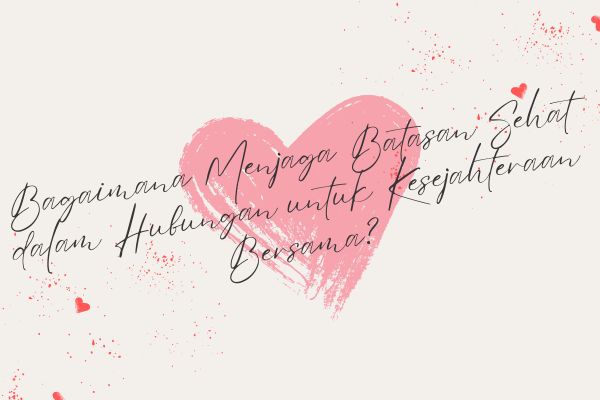 Bagaimana Menjaga Batasan Sehat
dalam Hubungan untuk Kesejahteraan
Bersama?